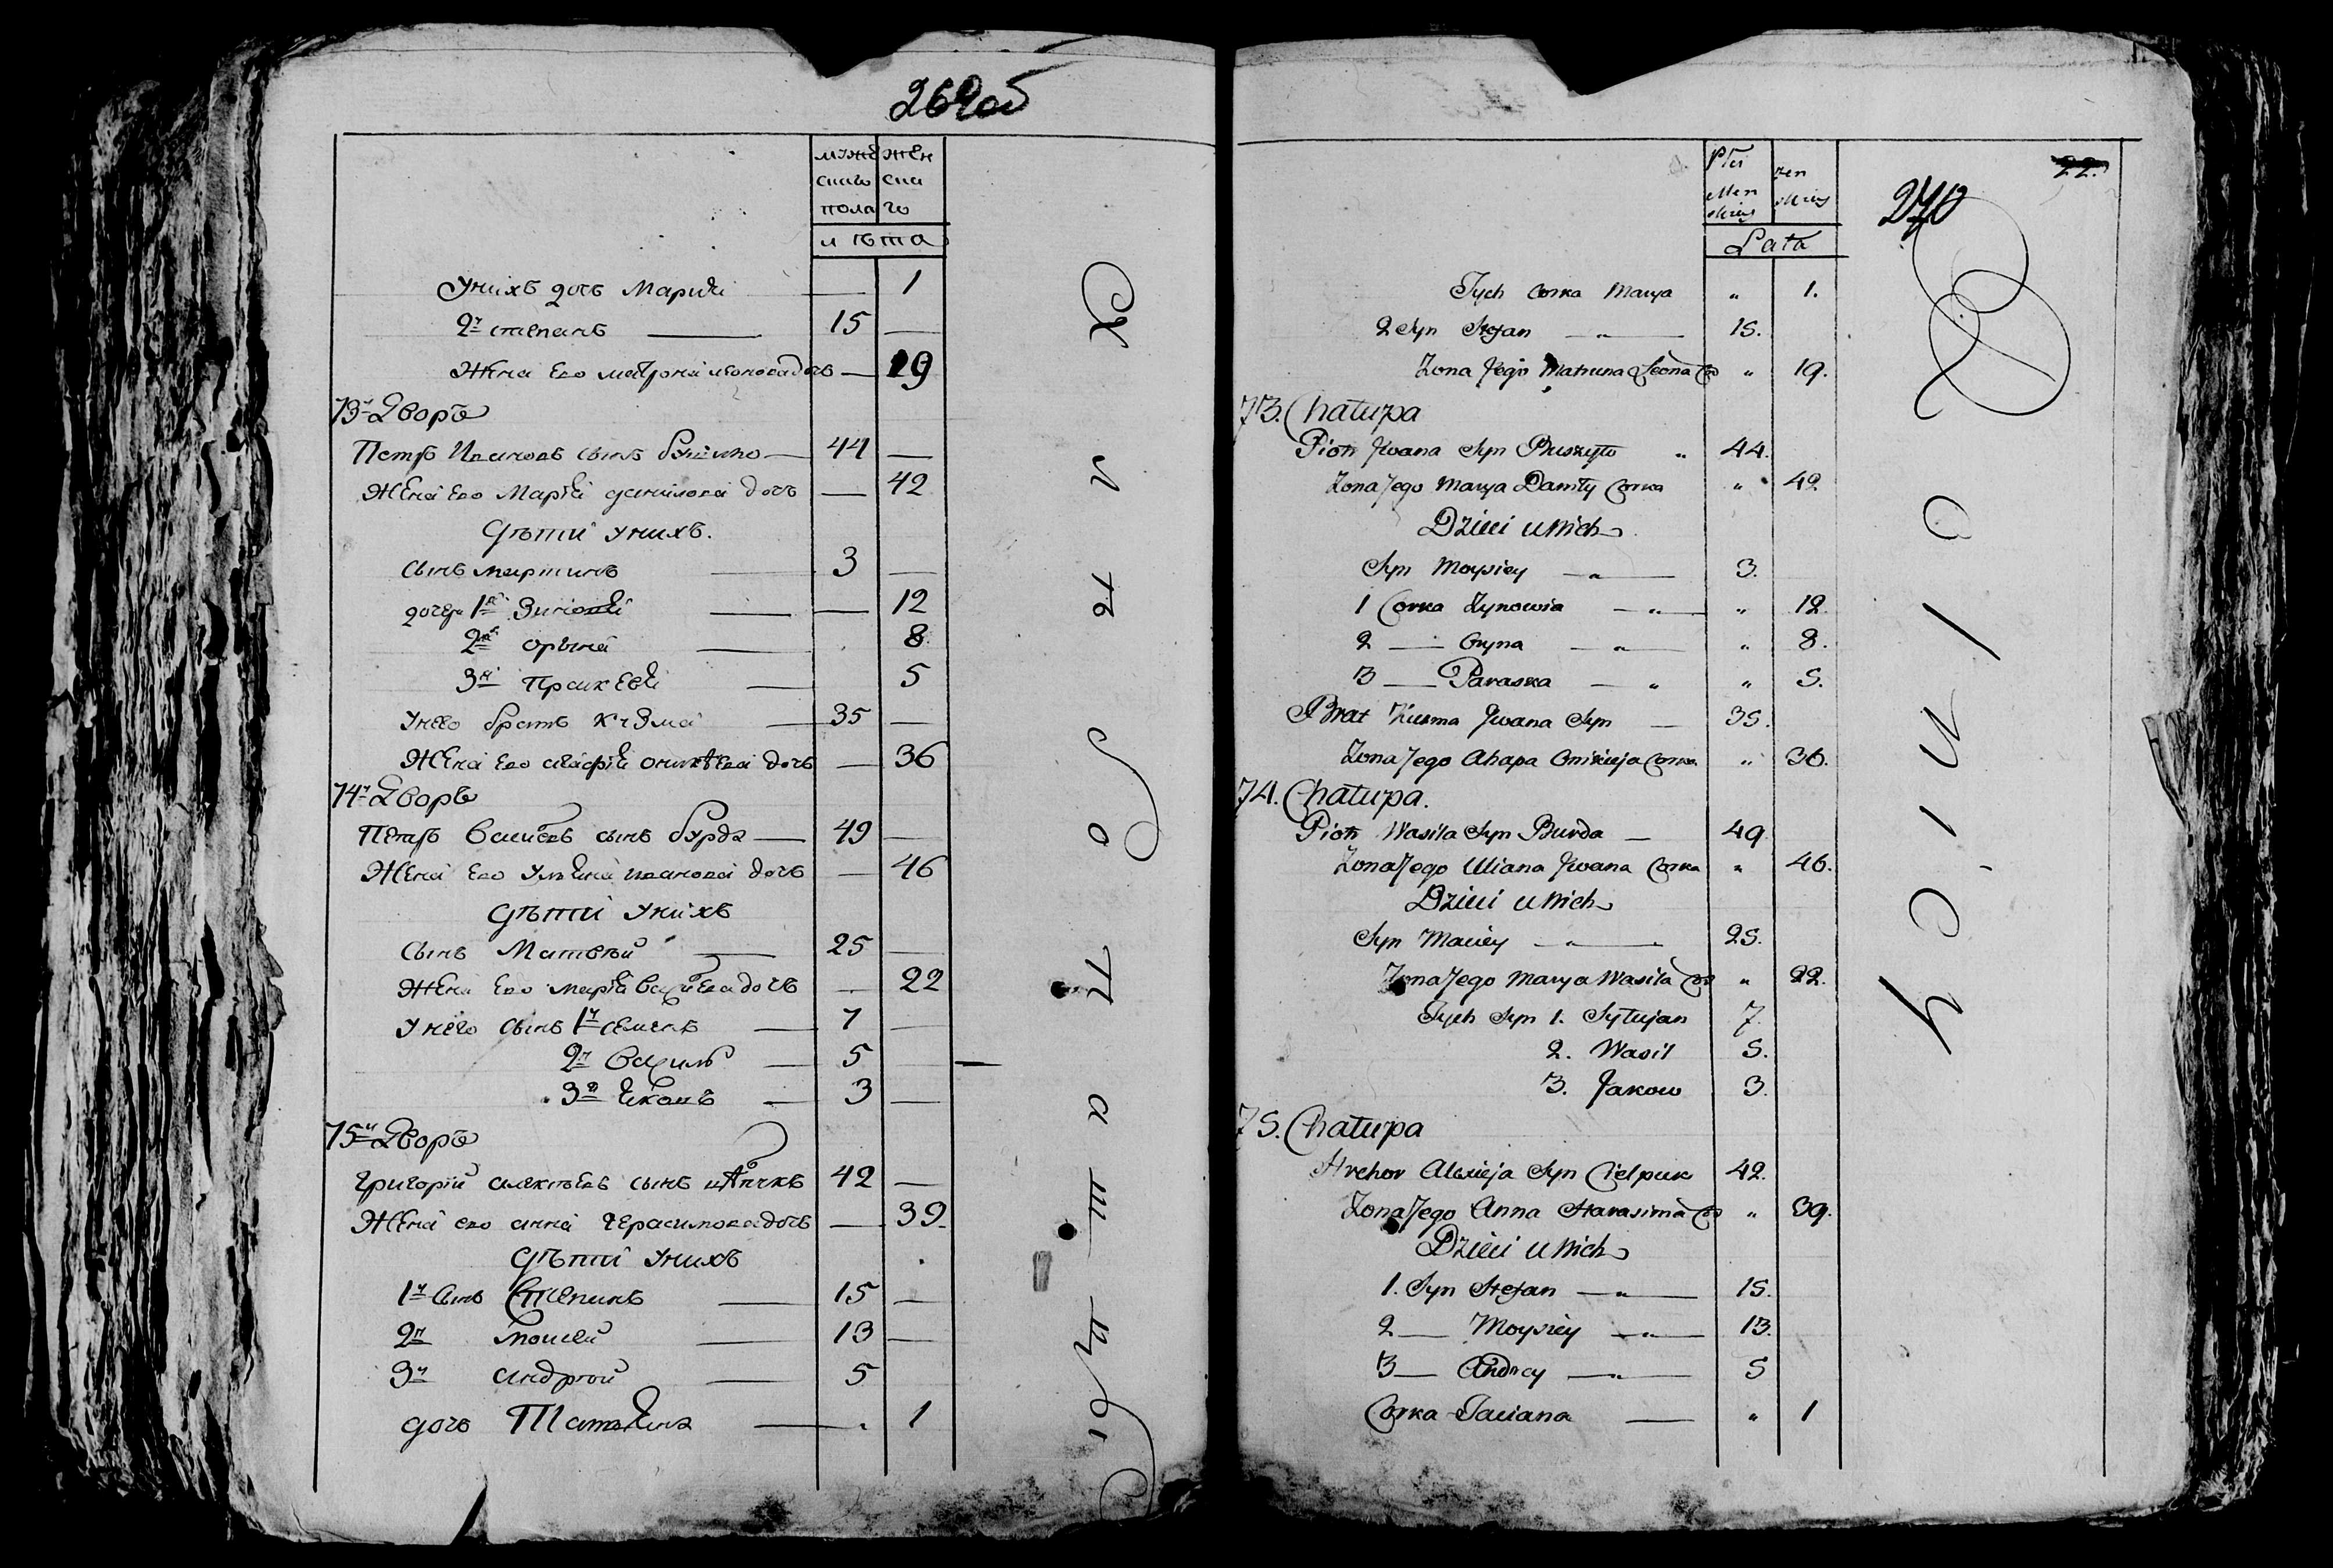 269об
мужескаго пола
женскаго
лѣта
Унихъ дочь Мариѣ 1
2й степанъ 15
Жена его матрона леонова дочь 19
73й Дворъ
Петръ Ивановъ сынъ 44
Жена его Мариѣ данилова дочь 42
Дѣти унихъ.
Сынъ 3
дочери 1я Зиновиѣ 12
2я орына 8
3я Праскевѣ 5
Унего братъ кузма 35
Жена его агафиѣ дочь 36
74й Дворъ
Петръ Василевъ сынъ бурда 49
Жена его Улѣяна иванова дочь 46
Дѣти унихъ
Сынъ Матвѣй 25
Жена его мариѣ василева дочь 22
Унего сынъ 1й семенъ 7
2й Василь 5
3й Яковъ 3
75й Дворъ
Григорий алексѣевъ сынъ 42
Жена его анна герасимова дочь 39
Дѣти унихъ
1й Сынъ Степанъ 15
2й Моисей 13
3й андрѣй 5
дочь Татьяна 1
Płci Męnskiey
żenskiey
Lata
22.
270
Tych Corka Marya " 1.
2 Syn Stefan " 15.
Zona Jego Matruna Leona Co " 19.
73. Chałupa
Piotr Jwana Syn Pruszyło " 44.
Zona Jego Marya Daniły Corka " 42
Dzieci u Nich
Syn Moysiey " 3.
1 Corka Zynowia " " 12.
2 Oryna " " 8.
3 Paraska " " 5.
Brat Kuzma Jwana Syn 35.
Zona Jego Ahapa Corka " 36.
74. Chałupa.
Piotr Wasila Syn Burda 49
Zona Jego Uliana Jwana Corka " 46.
Dzieci u Nich
Syn Maciey " 25.
Zona Jego Marya Wasila Co " 22.
Tych Syn 1. 7.
2. Wasil 5.
3. Jakow 3.
75. Chałupa
Hrehor Alexieja Syn Cielpuk 42.
Zona Jego Anna Harasima Co " 39.
Dzieci u Nich
1. Syn Stefan " 15.
2 Moysiey " 13.
3 Andrey " 5
Corka Taciana " 1